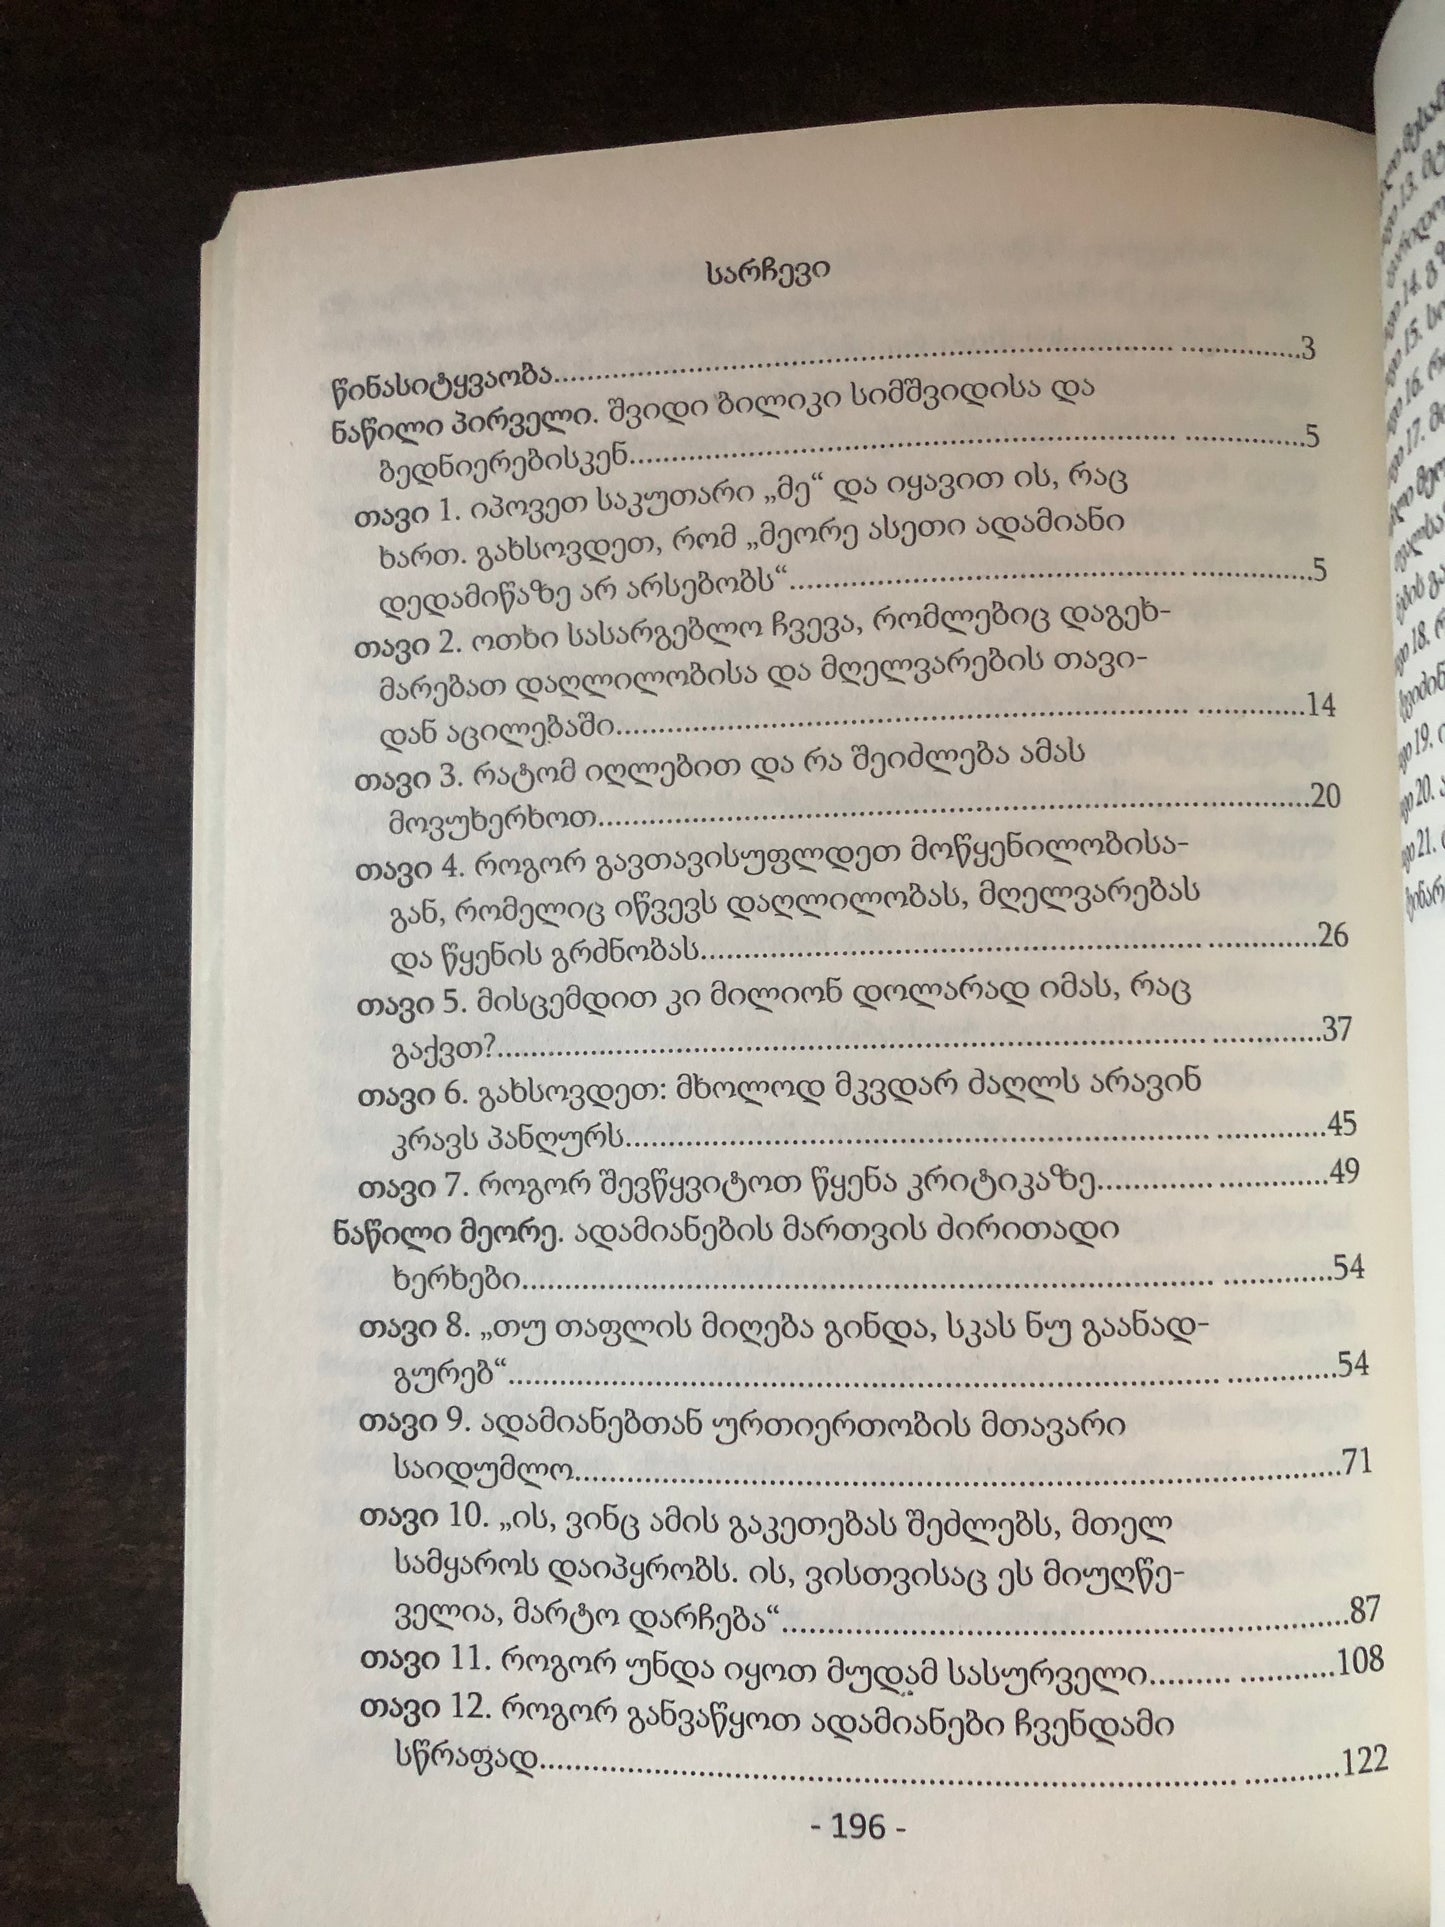 სარჩევი
წინასიტყვაობა.......................................................................................3
ნაწილი პირველი. შვიდი ბილიკი სიმშვიდისა და
ბედნიერებისკენ.............................................................................5
თავი 1. იპოვეთ საკუთარი „მე“ და იყავით ის, რაც
ხართ. გახსოვდეთ, რომ „მეორე ასეთი ადამიანი
დედამიწაზე არ არსებობს“............................................................5
თავი 2. ოთხი სასარგებლო ჩვევა, რომლებიც დაგეხ-
მარებათ დაღლილობისა და მღელვარების თავი-
დან აცილებაში.................................................................................14
თავი 3. რატომ იღლებით და რა შეიძლება ამას
მოვუხერხოთ...................................................................................20
თავი 4. როგორ გავთავისუფლდეთ მოწყენილობისა-
გან, რომელიც იწვევს დაღლილობას, მღელვარებას
და წყენის გრძნობას.......................................................................26
თავი 5. მისცემდით კი მილიონ დოლარად იმას, რაც
გაქვთ?...............................................................................................37
თავი 6. გახსოვდეთ: მხოლოდ მკვდარ ძაღლს არავინ
კრავს პანღურს.................................................................................45
თავი 7. როგორ შევწყვიტოთ წყენა კრიტიკაზე..........................49
ნაწილი მეორე. ადამიანების მართვის ძირითადი
ხერხები.............................................................................................54
თავი 8. „თუ თაფლის მიღება გინდა, სკას ნუ გაანად-
გურებ“...............................................................................................54
თავი 9. ადამიანებთან ურთიერთობის მთავარი
საიდუმლო.......................................................................................71
თავი 10. „ის, ვინც ამის გაკეთებას შეძლებს, მთელ
სამყაროს დაიპყრობს. ის, ვისთვისაც ეს მიუღწე-
ველია, მარტო დარჩება“................................................................87
თავი 11. როგორ უნდა იყოთ მუდამ სასურველი....................108
თავი 12. როგორ განვაწყოთ ადამიანები ჩვენდამი
სწრაფად...........................................................................................122
- 196 -